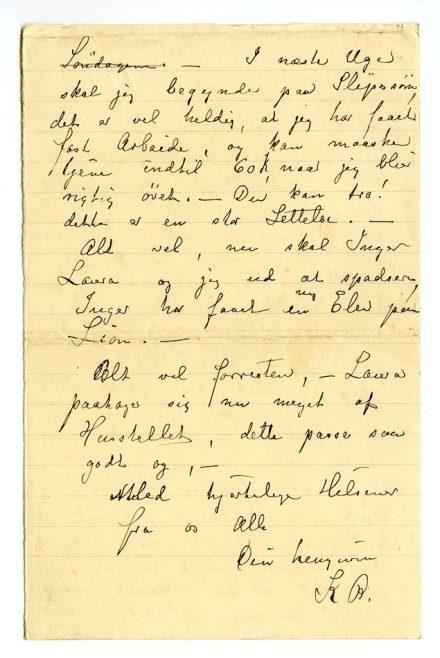 Söndagen. — I næste Uge
skal jeg begynde paa
det er vel heldig, at jeg har faaet
fast Arbeide, og kan maaske
tjene indtil 60k, naar jeg blir
rigtig övet. — Du kan tro!
dette er en stor Lettelse. —
Alt vel, nu skal Inger
Laura og jeg ud at spadsere,
Inger har faaet en ny Elev paa
Lion. —
Alt vel forresten, — Laura
paatage sig nu meget af
Husstellet, dette passe saa
godt og, —
Med hjertelige Hilsener
fra os Alle
Din hengivne
K B.